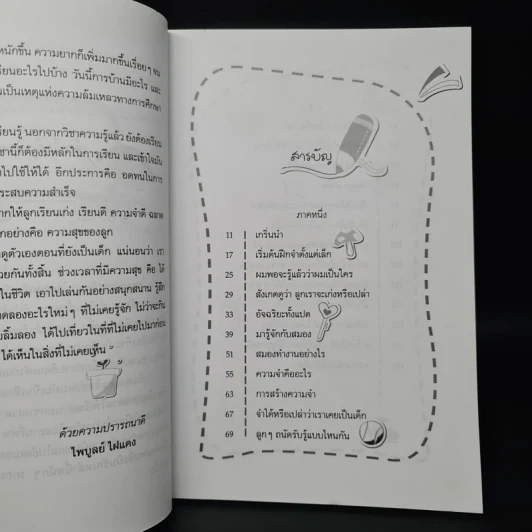 หนักขึ้น ความยากก็เพิ่มมากขึ้นเรื่อยๆ จน
เรียนอะไรไปบ้าง วันนี้การบ้านมีอะไร และ
เป็นเหตุแห่งความล้มเหลวทางการศึกษา
เรียนรู้ นอกจากวิชาความรู้แล้ว ยังต้องเรียน
ชานี้ก็ต้องมีหลักในการเรียน และเข้าใจมัน
ไปใช้ให้ได้ อีกประการคือ อดทนในการ
ประสบความสำเร็จ
ากให้ลูกเรียนเก่ง เรียนดี ความจำดี ฉลาด
อีกอย่างคือ ความสุขของลูก
ดูตัวเองตอนที่ยังเป็นเด็ก แน่นอนว่า เรา
วยกันทั้งสิ้น ช่วงเวลาที่มีความสุข คือ ได้
ในชีวิต เอาไปเล่นกันอย่างสนุกสนาน รู้สึก
ดลองอะไรใหม่ๆ ที่ไม่เคยรู้จัก ไม่ว่าจะกิน
ลิ้มลอง ได้ไปเที่ยวในที่ที่ไม่เคยไปมาก่อน
ได้เห็นในสิ่งที่ไม่เคยเห็น
ด้วยความปรารถนาดี
ไพบูลย์ ไฝแดง
สารบัญ
ภาคหนึ่ง
11 เกริ่นนำ
17 เริ่มต้นฝึกจำตั้งแต่เล็ก
25 ผมพอจะรู้แล้วว่าผมเป็นใคร
29 สังเกตดูว่า ลูกเราจะเก่งหรือเปล่า
33 อัจฉริยะทั้งแปด
39 มารู้จักกับสมอง
51 สมองทำงานอย่างไร
55 ความจำคืออะไร
63 การสร้างความจำ
67 จำได้หรือเปล่าว่าเราเคยเป็นเด็ก
69 ลูกๆ ถนัดรับรู้แบบไหนกัน